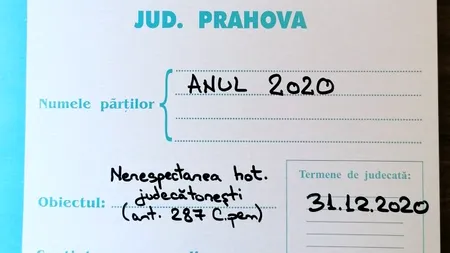 JUD. PRAHOVA
Numele părților
ANUL 2020
Obiectul:
Nerespectarea hot.
judecătorești
(art. 287 C.pen)
Termene de judecată:
31.12.2020